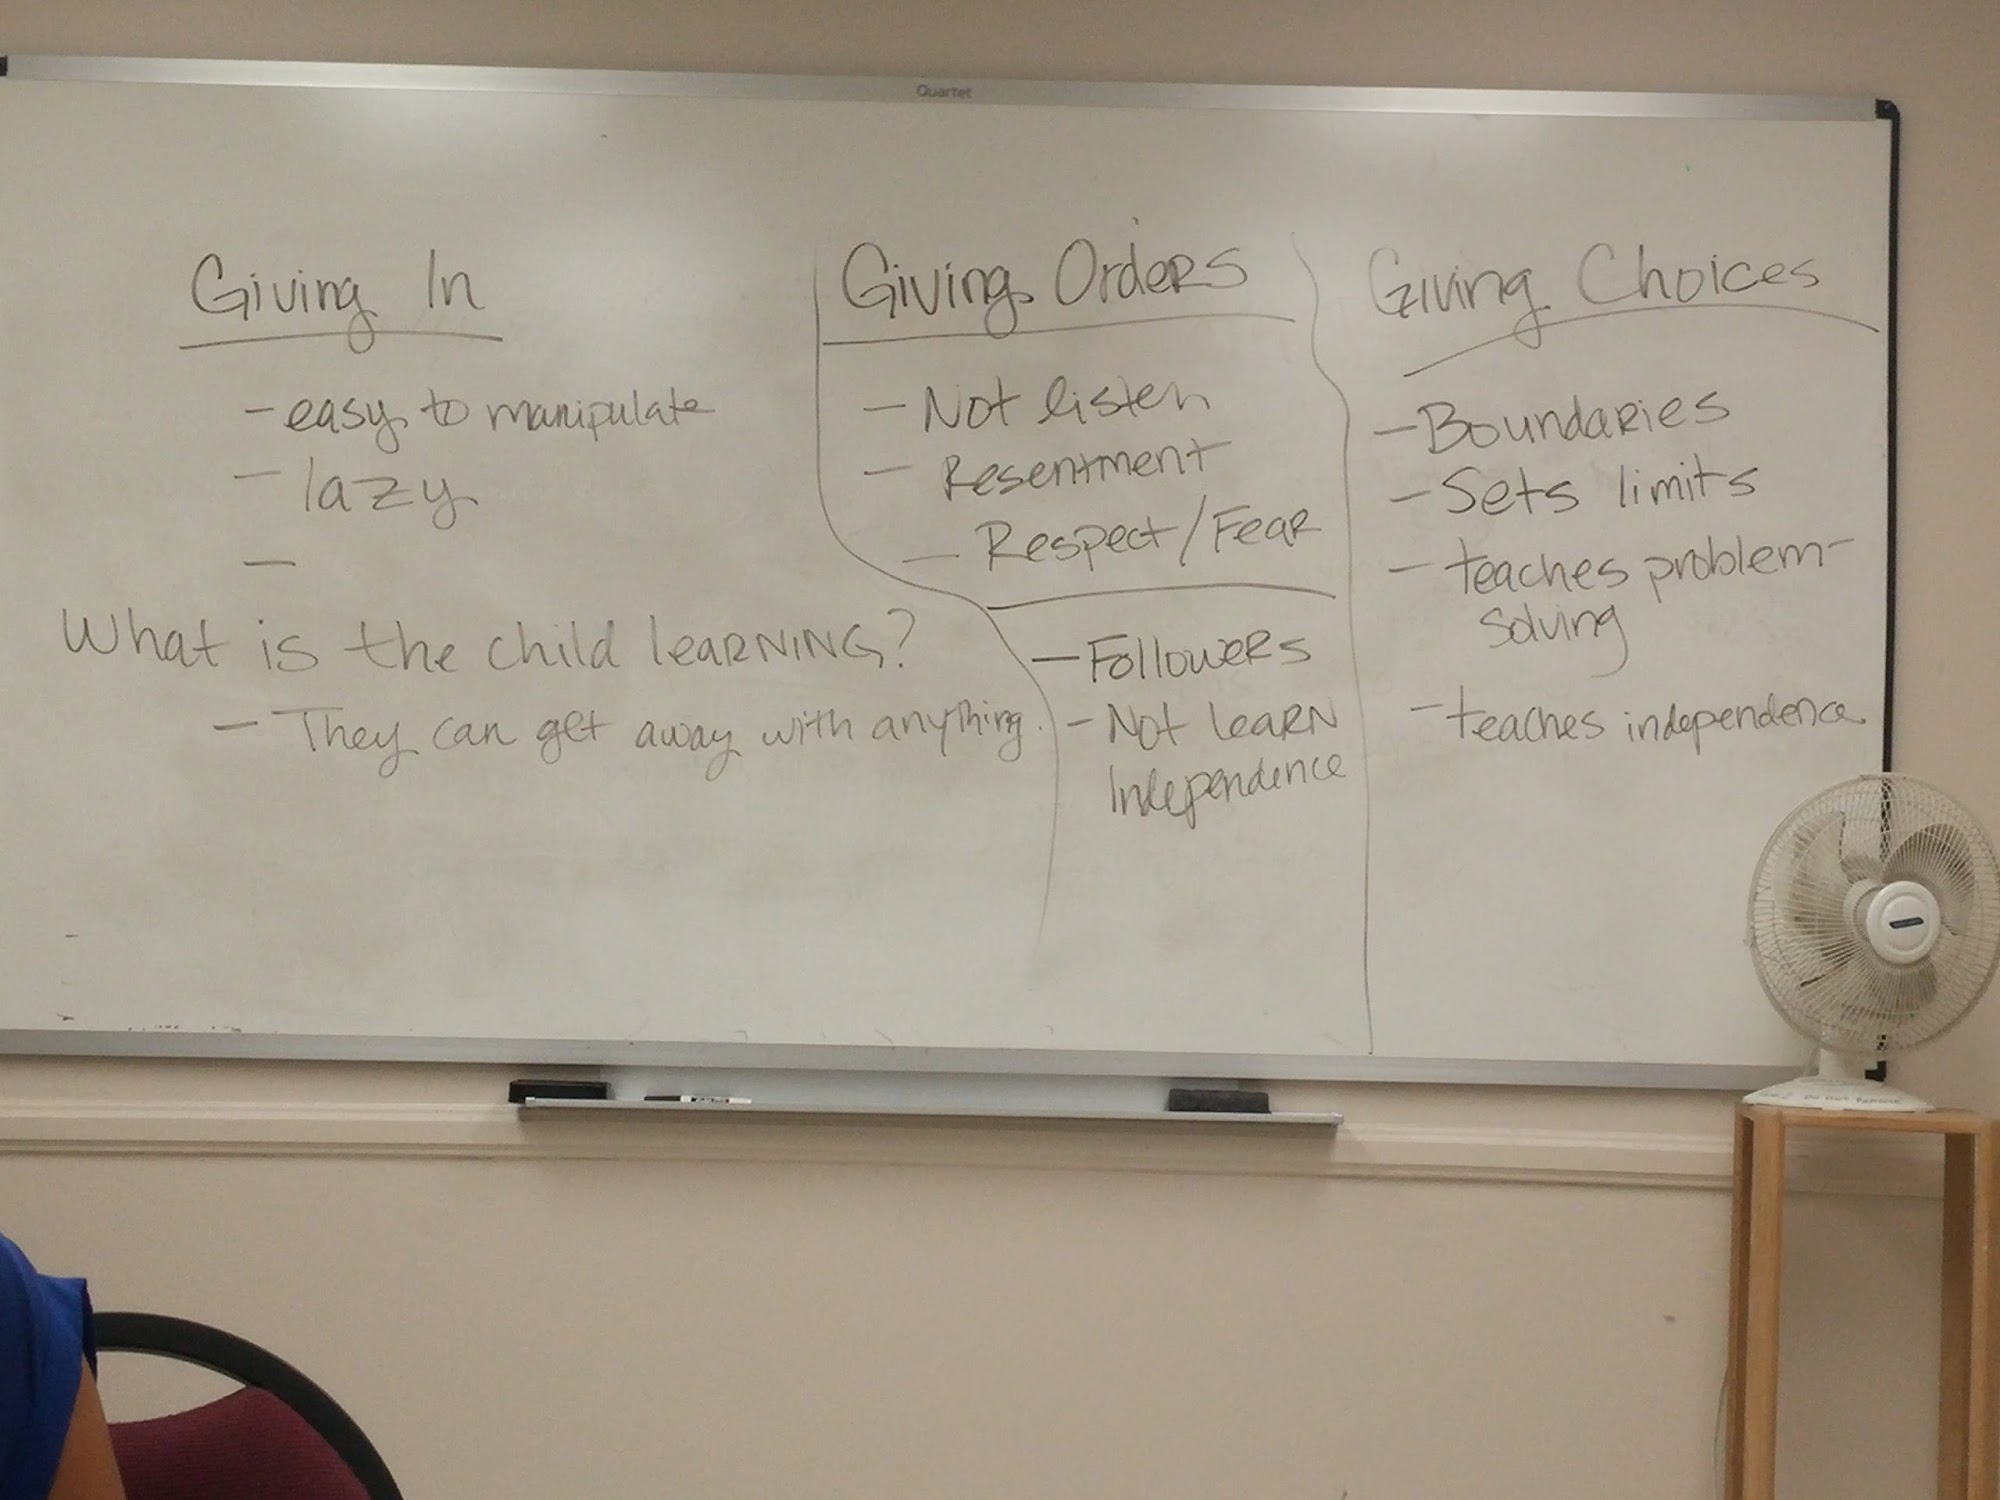 Quartet
Giving In
- easy to manipulate
- lazy
-
What is the child learning?
- They can get away with anything.
Giving Orders
- Not listen
- Resentment
- Respect/Fear
- Followers
- Not learn
Independence
Giving Choices
- Boundaries
- Sets limits
- teaches problem-
solving
- teaches independence